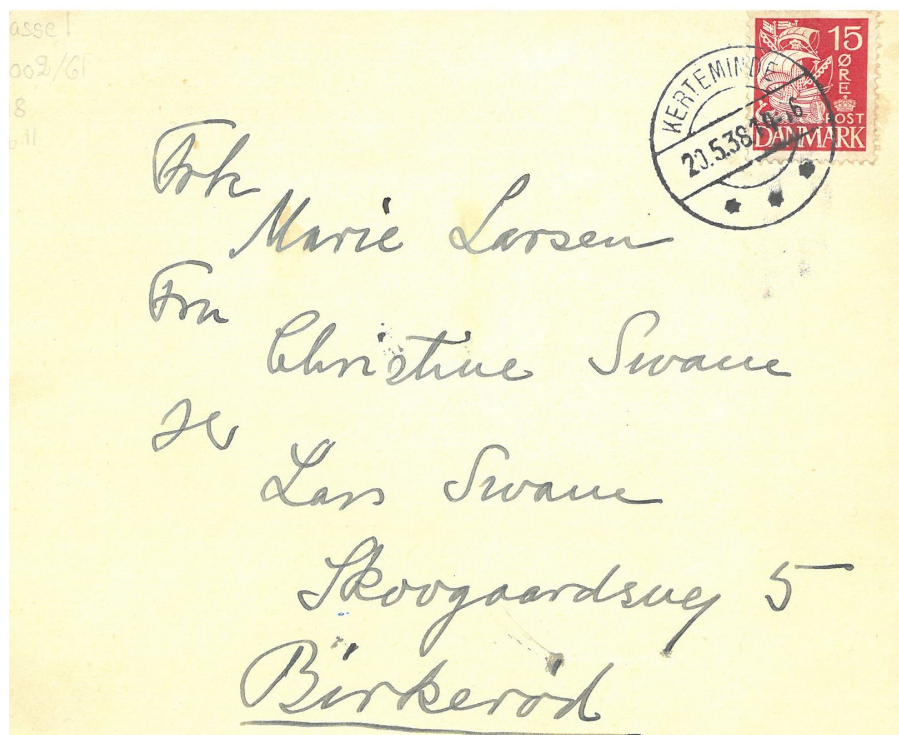 asse1
002/61
8
11
15
ØRE
POST
DANMARK
KERTEMINDE
20.5.38.
Frk
Marie Larsen
Fru
Christine Swane
Hr
Lars Swane
Skovgaardsvej 5
Birkerød